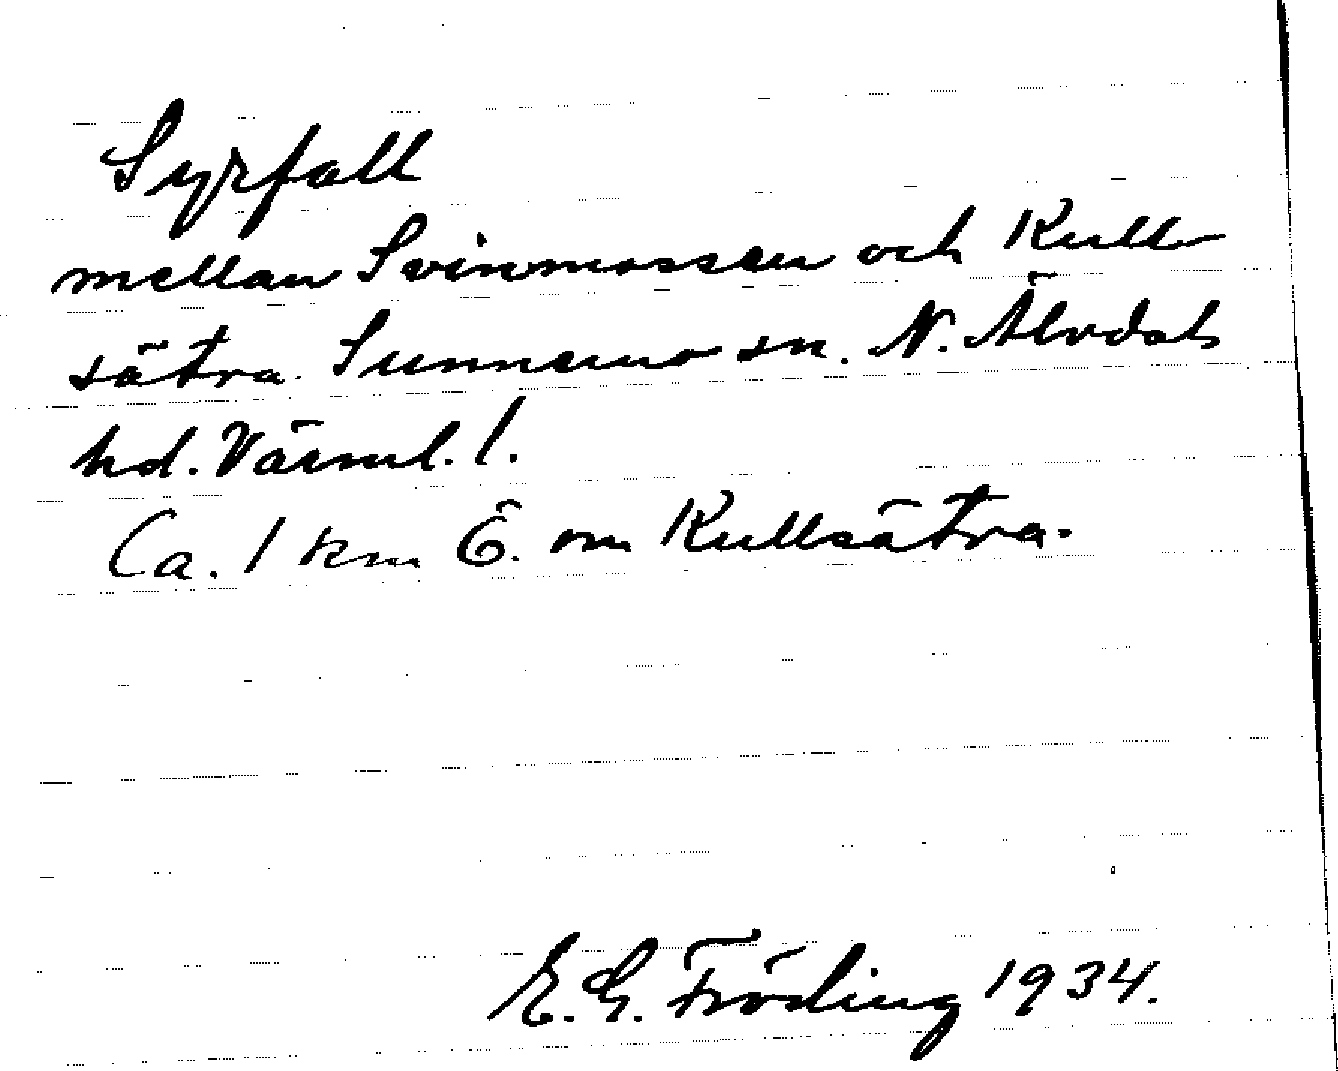 Syrfall
mellan Svinmossen och Kull
sätra. Sunnemo sn. N. Älvdals
hd. Värml. l.
Ca. 1 km E. om Kullsätra.
E. G. Fröding 1934.